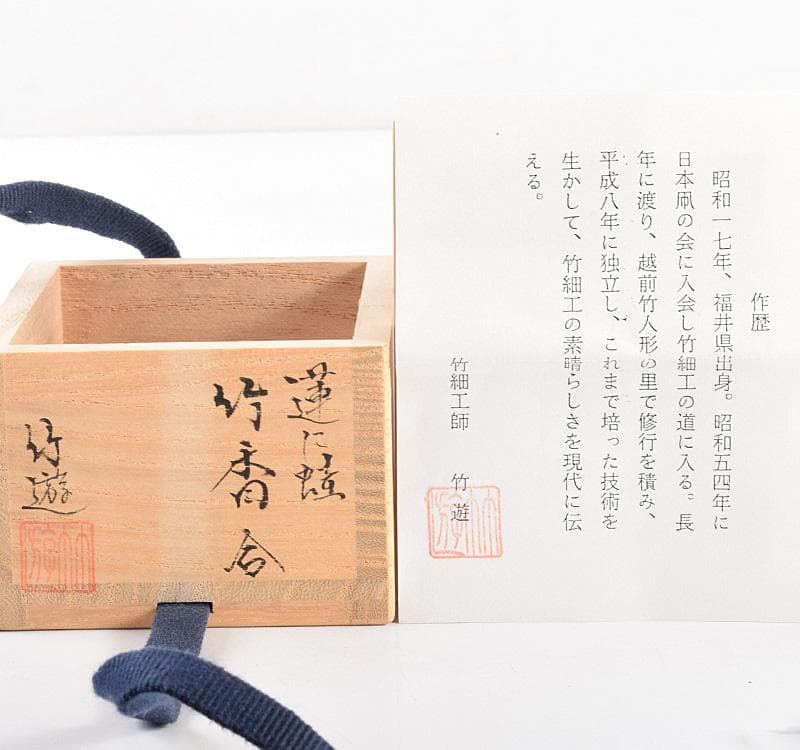 作歴
昭和一七年、福井県出身。昭和五四年に
日本凧の会に入会し竹細工の道に入る。長
年に渡り、越前竹人形の里で修行を積み、
平成八年に独立し、これまで培った技術を
生かして、竹細工の素晴らしさを現代に伝
える。
竹細工師 竹遊
竹遊
蓮に蛙
竹香合
竹遊
竹遊